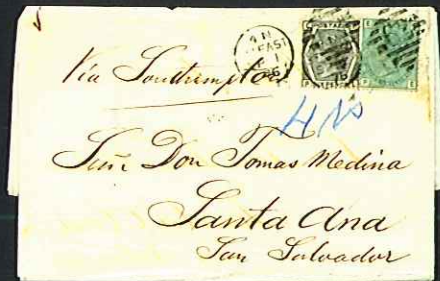 Via Southampton
Señr Don Tomas Medina
Santa Ana
San Salvador